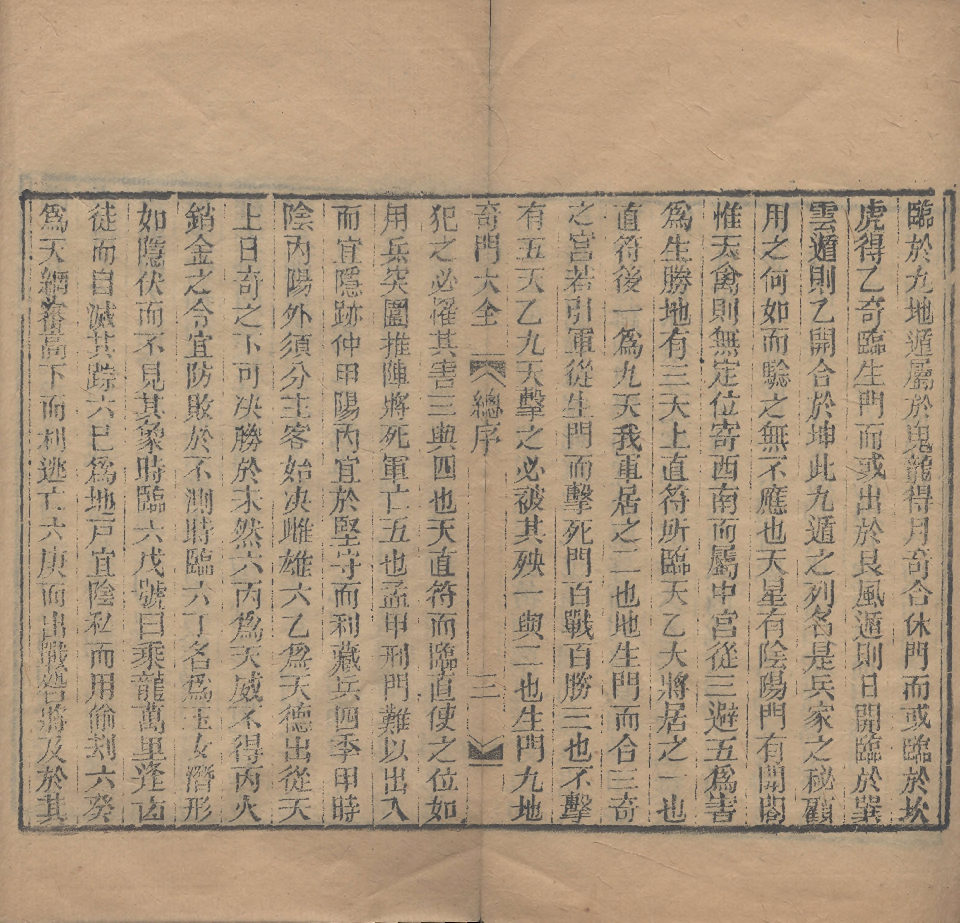 臨於九地遁屬於鬼龍得月奇合休門而或臨於坎
虎得乙奇臨生門而或出於艮風遁則日開臨於巽
雲遁則乙開合於坤此九遁之列名是兵家之秘顧
用之何如而驗之無不應也天星有陰陽門有開闔
惟天禽則無定位寄西南而屬中宮從三避五爲害
爲生勝地有三大上直符所臨天乙大將居之一也
直符後一爲九天我軍居之二也地生門而合三奇
之宮若引軍從生門而擊死門百戰百勝三也不擊
有五天乙九天擊之必被其殃一與二也生門九地
奇門大全 總序 三
犯之必懼其害三與四也天直符而臨直使之位如
用兵突圍推陣將死軍亡五也孟甲刑門難以出入
而宜隱跡仲甲陽丙宜於堅守而利藏兵四季甲時
陰內陽外須分主客始决雌雄六乙爲天德出從天
上日奇之下可决勝於未然六丙爲天威不得丙火
銷金之令宜防敗於不測時臨六丁名爲玉女潛形
如隱伏而不見其象時臨六戊號曰乘龍萬里逢凶
徒而自滅其踪六巳爲地戸宜陰私而用偷刦六癸
爲天網看高下而利逃亡六庚而出戰